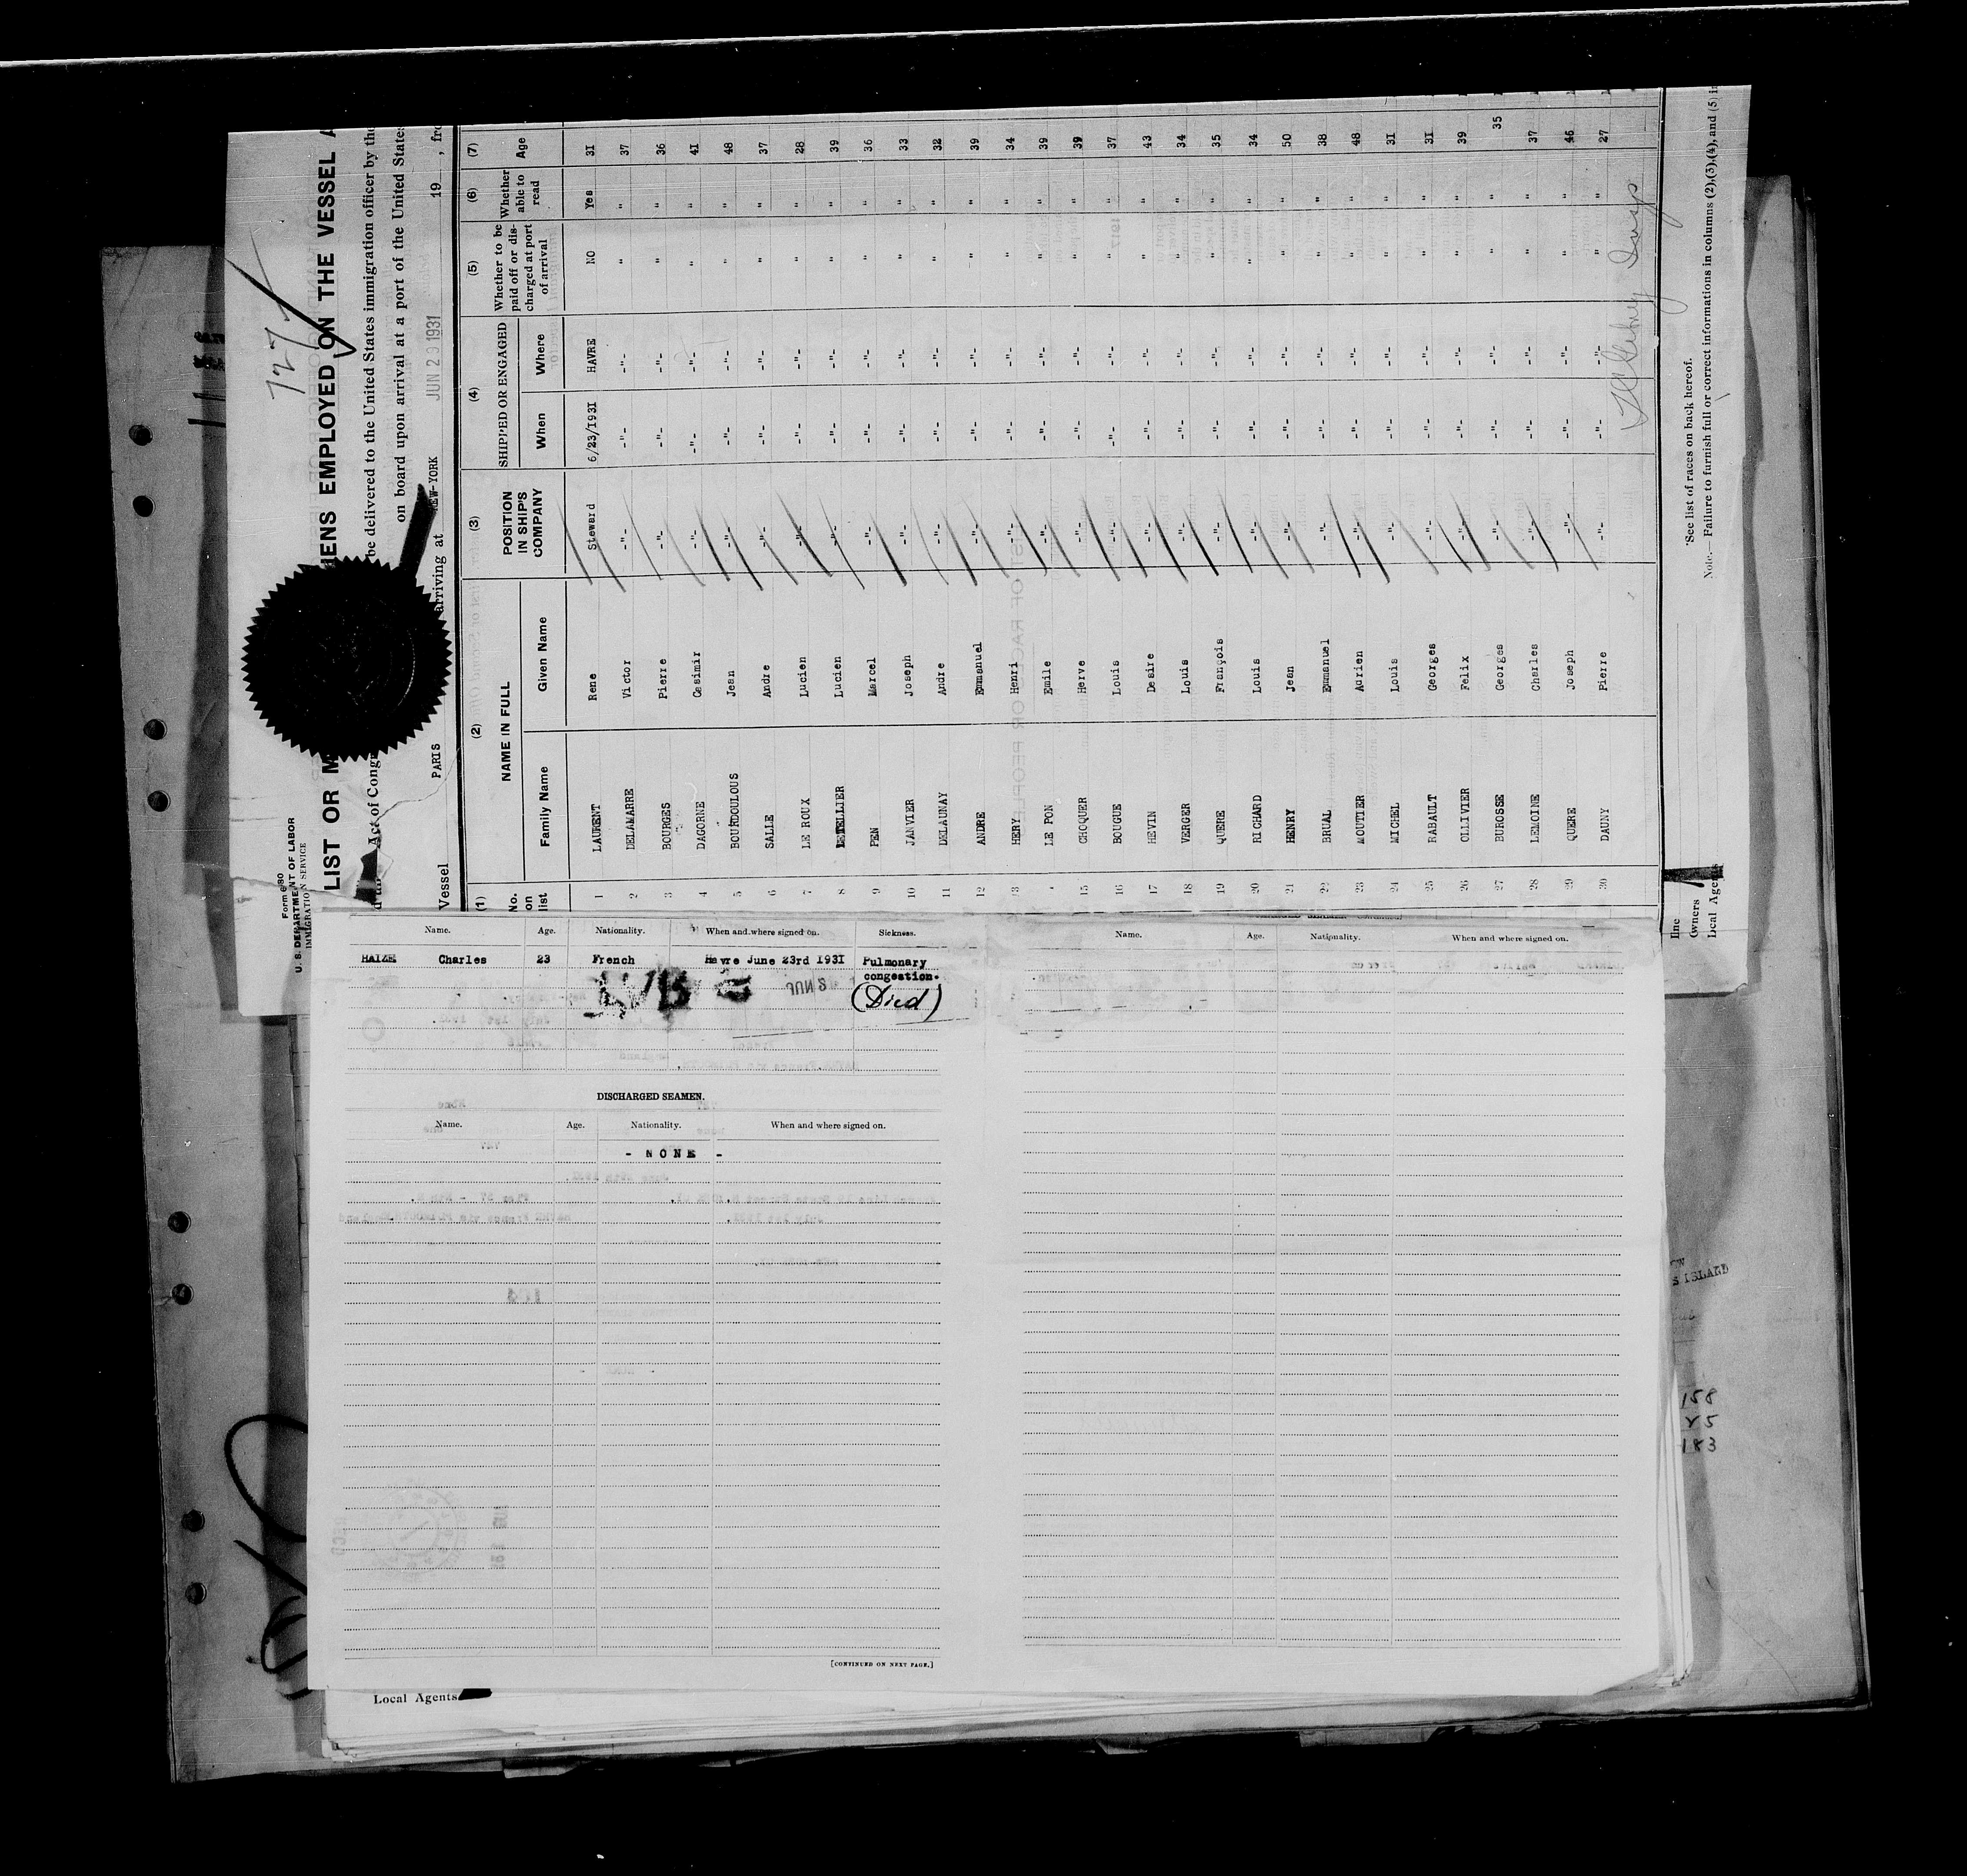 Form 680
U. S. DEPARTMENT OF LABOR
IMMIGRATION SERVICE
LIST OR M
IENS EMPLOYED ON THE VESSEL A
Act of Congr
be delivered to the United States immigration officer by the
on board upon arrival at a port of the United States
Vessel PARIS arriving at NEW-YORK JUN 29 1931 19 , fro
(1) (2) (3) (4) (5) (6) (7)
No. on list NAME IN FULL POSITION IN SHIP'S COMPANY SHIPPED OR ENGAGED Whether to be paid off or discharged at port of arrival Whether able to read Age
Family Name Given Name When Where
1 LAURENT Rene Steward 6/23/1931 HAVRE NO Yes 31
2 DELAMARRE Victor -"- -"- -"- " " 37
3 BOURGES Pierre -"- -"- -"- " " 36
4 DAGORNE Casimir -"- -"- -"- " " 41
5 BOURDOULOUS Jean -"- -"- -"- " " 48
6 SALLE Andre -"- -"- -"- " " 37
7 LE ROUX Lucien -"- -"- -"- " " 28
8 LETELLIER Lucien -"- -"- -"- " " 39
9 PEN Marcel -"- -"- -"- " " 36
10 JANVIER Joseph -"- -"- -"- " " 33
11 DELAUNAY Andre -"- -"- -"- " " 32
12 ANDRE Emmanuel -"- -"- -"- " " 39
13 HERY Henri -"- -"- -"- " " 34
LE PON Emile -"- -"- -"- " " 39
15 CROQUER Herve -"- -"- -"- " " 39
16 BOUGUE Louis -"- -"- -"- " " 37
17 HEVIN Desire -"- -"- -"- " " 43
18 VERGER Louis -"- -"- -"- " " 34
19 QUERE François -"- -"- -"- " " 35
20 RICHARD Louis -"- -"- -"- " " 34
21 HENRY Jean -"- -"- -"- " " 50
22 BRUAL Emmanuel -"- -"- -"- " " 38
23 MOUTIER Adrien -"- -"- -"- " " 48
24 MICHEL Louis -"- -"- -"- " " 31
25 RABAULT Georges -"- -"- -"- " " 31
26 OLLIVIER Felix -"- -"- -"- " " 39
27 BUROSSE Georges -"- -"- -"- " " 35
28 LEMOINE Charles -"- -"- -"- " " 37
29 QUERE Joseph -"- -"- -"- " " 46
30 DAUNY Pierre -"- -"- -"- " " 27
line
Owners
Local Agents
*See list of races on back hereof.
Note.—Failure to furnish full or correct informations in columns (2),(3),(4), and (5) i
Name. Age. Nationality. When and where signed on. Sickness.
HAIZE Charles 23 French Havre June 23rd 1931 Pulmonary
congestion.
(Died)
DISCHARGED SEAMEN.
Name. Age. Nationality. When and where signed on.
- NONE -
[CONTINUED ON NEXT PAGE.]
Name. Age. Nationality. When and where signed on.
Local Agents
S ISLAND
158
25
183